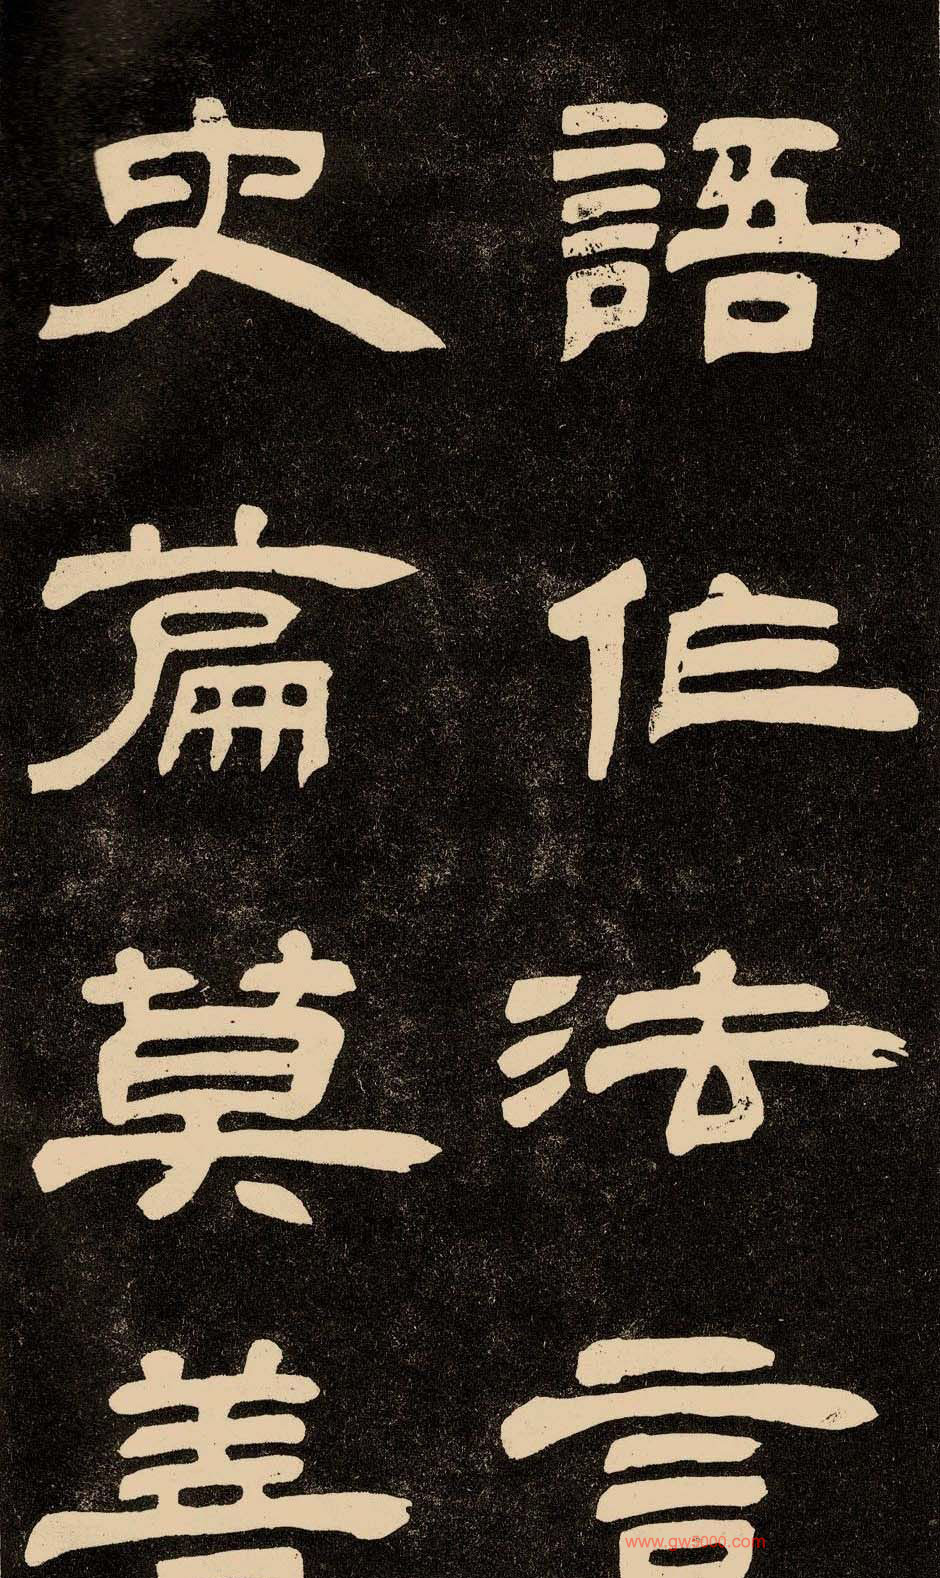 語作法言
史萹莫善
www.gw5000.com